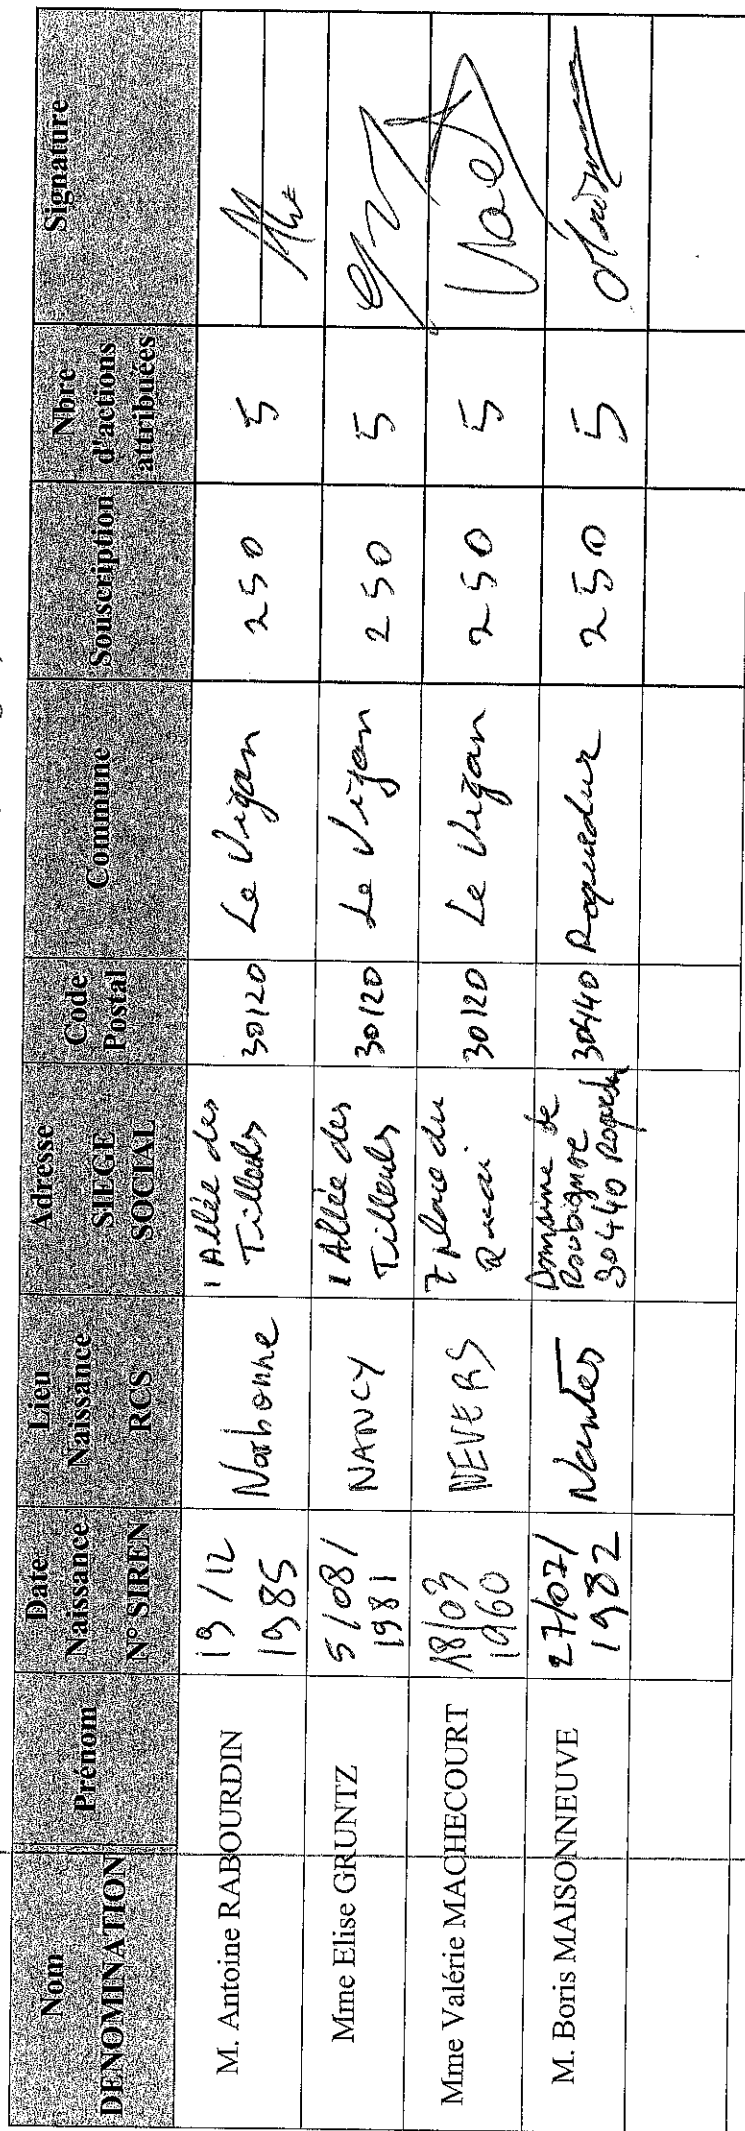 Nom
DENOMINATION
Prénom
Date
Naissance
N° SIREN
Lieu
Naissance
RCS
Adresse
SIEGE
SOCIAL
Code
Postal
Commune
Souscription
Nbre
d'actions
attribuées
Signature
M. Antoine RABOURDIN
19/12
1985
Narbonne
1 Allée des
Tilleuls
30120
Le Vigan
250
5
Mme Elise GRUNTZ
5/08/
1981
NANCY
1 Allée des
Tilleuls
30120
Le Vigan
250
5
Mme Valérie MACHECOURT
18/03
1960
NEVERS
7 place du
Quai
30120
Le Vigan
250
5
M. Boris MAISONNEUVE
27/07/
1982
Nantes
Domaine de
30440
30440
Roquedur
250
5